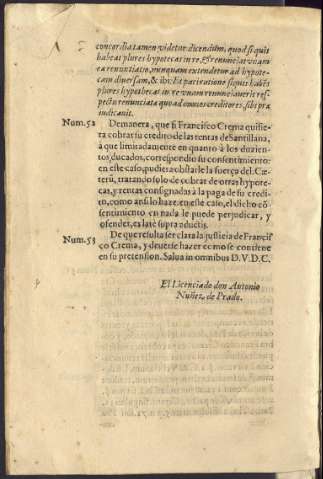 concordia tamen videtur dicendum, quod si quis
habeat plures hypotecas in re, & renunciat vnam
ea renuntiatio, nunquam extendetur ad hypote-
cam diuersam, & ibi: Et pari ratione si quis habẽs
plures hypothecas in re vnam renunciauerit res-
pectu renuntiata quo ad omnes creditores, sibi præ
iudicauit.
Num.52 Demanera, que si Francisco Crema quisie-
ra cobrar su credito de las rentas de Santillana,
a que limitadamente en quanto à los duzien-
tos ducados, correspondio su consentimiento:
en este caso, pudiera obstarle la fuerça del Cæ-
terũ, tratando solo de cobrar de otras hypote-
cas, y rentas consignadas a la paga de su credi-
to, como ansi lo haze, en este caso, el dicho cõ-
sentimiento en nada le puede perjudicar, y
ofender, ex latè supra ductis.
Num.53 De que resulta ser clara la justicia de Francis
ço Crema, y deuerse hazer como se contiene
en su pretension. Salua in omnibus D.V.D.C.
El Licenciado don Antonio
Nuñez de Prado.